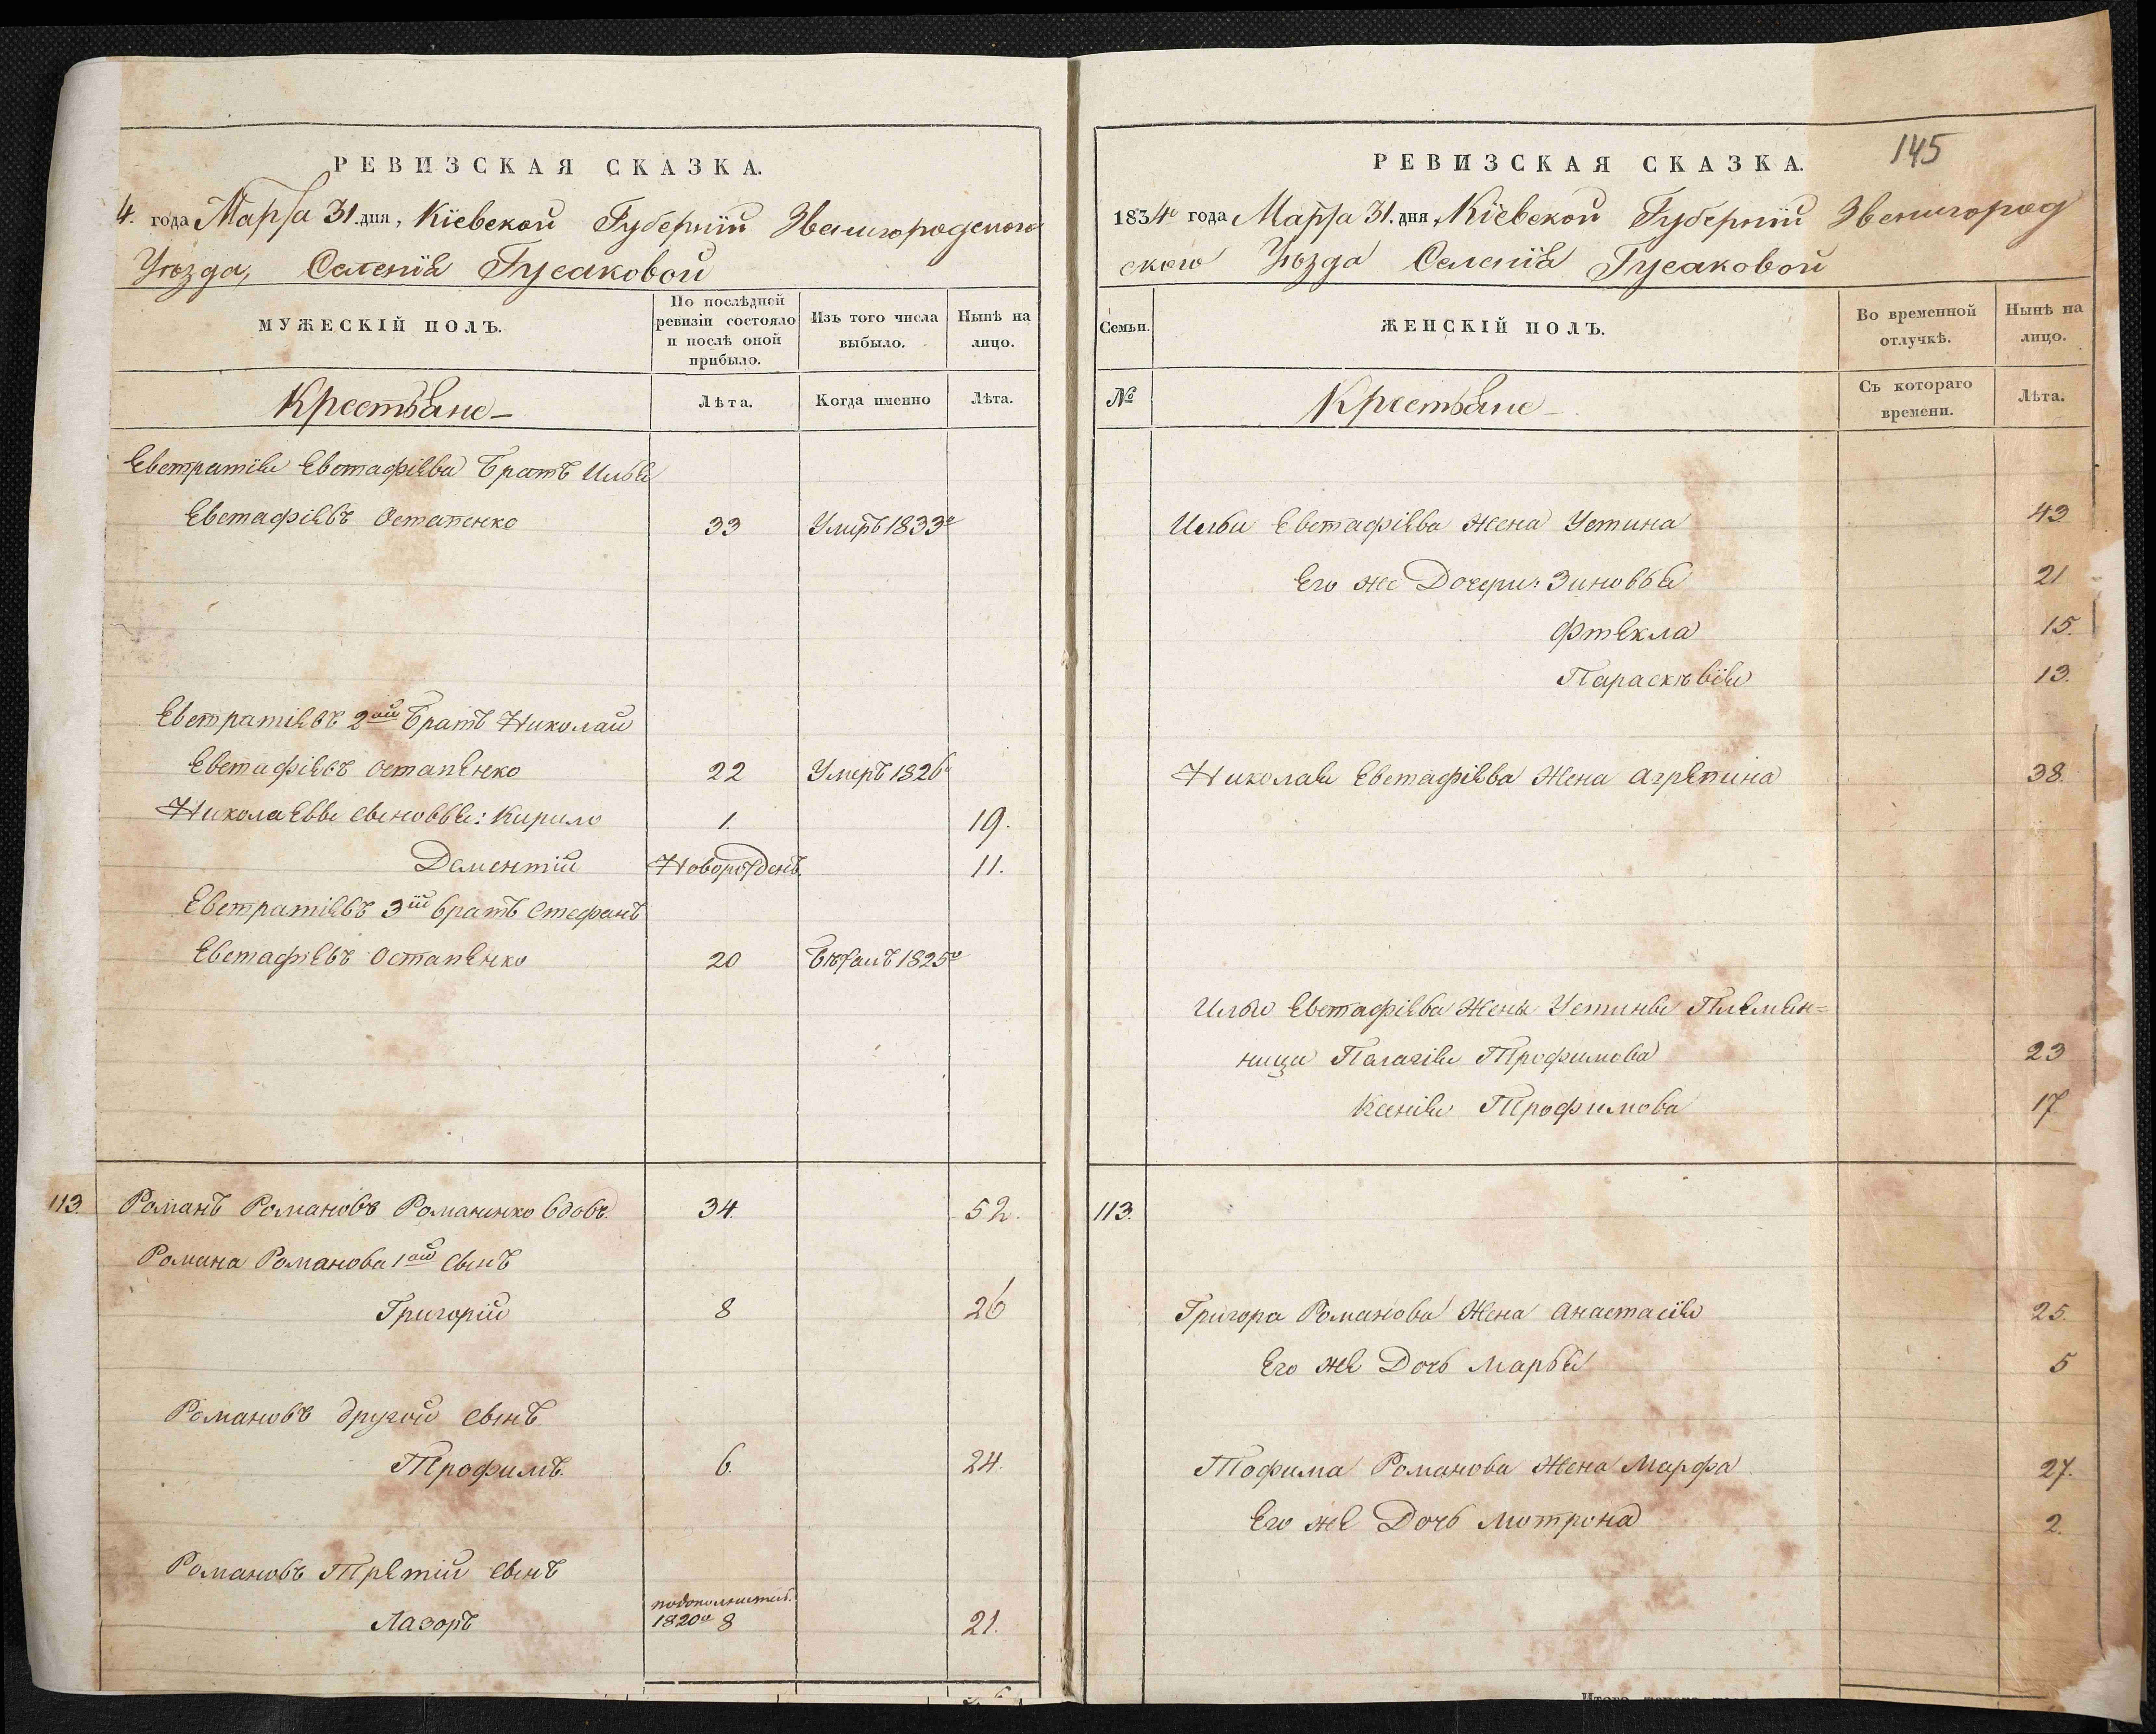 РЕВИЗСКАЯ СКАЗКА.
4. года Марта 31. дня, Кіевской Губерніи Звенигородскаго
Уѣзда, Селенія Гусаковой
МУЖЕСКІЙ ПОЛЪ.
По послѣдней ревизіи состояло и послѣ оной прибыло.
Изъ того числа выбыло.
Нынѣ на лицо.
Крестьяне
Лѣта.
Когда именно
Лѣта.
Евстратія Евстафіева братъ Илья
Евстафіевъ Остапенко 33 Умеръ 1833го
Евстратіевъ 2ой братъ Николай
Евстафіевъ Остапенко 22 Умеръ 1826
Николаевы сыновья: Кирило 1. 19.
Дементій Новорожденъ 11.
Евстратіевъ 3ій братъ Стефанъ
Евстафіевъ Остапенко 20 Бѣжалъ 1825го
113. Романъ Романовъ Романенко вдовъ. 34. 52.
Романа Романова 1ой сынъ
Григорій 8 26
Романовъ другой сынъ
Трофимъ. 6. 24.
Романовъ Третій сынъ
подополнител.
Лазоръ 1820го 8 21.
145
РЕВИЗСКАЯ СКАЗКА.
1834го года Марта 31. дня, Кіевской Губерніи Звенигород
ского Уѣзда Селенія Гусаковой
Семьи.
ЖЕНСКІЙ ПОЛЪ.
Во временной отлучкѣ.
Нынѣ на лицо.
№
Крестьяне
Съ котораго времени.
Лѣта.
Ильи Евстафіева жена Устина 43
Его же Дочери: Зиновья 21
Фтекла 15.
Параскѣвія 13.
Николая Евстафіева Жена Агрепина 38.
Ильи Евстафіева Жены Устины Племен=
ницы Палагія Трофимова 23
Ксенія Трофимова 17
113.
Григора Романова Жена Анастасія 25.
Его же Дочь Марья 5
Тофима Романова Жена Марфа 27.
Его же Дочь Мотрона 2.